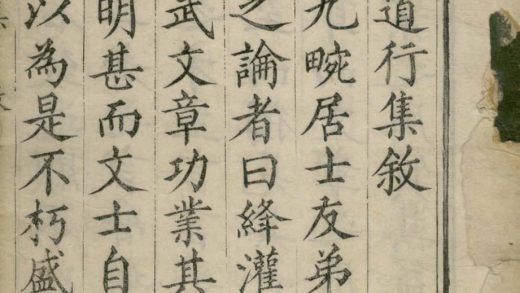 道行集敘
九畹居士友弟
之論者曰絳灌
武文章功業其
明甚而文士自
以為是不朽盛